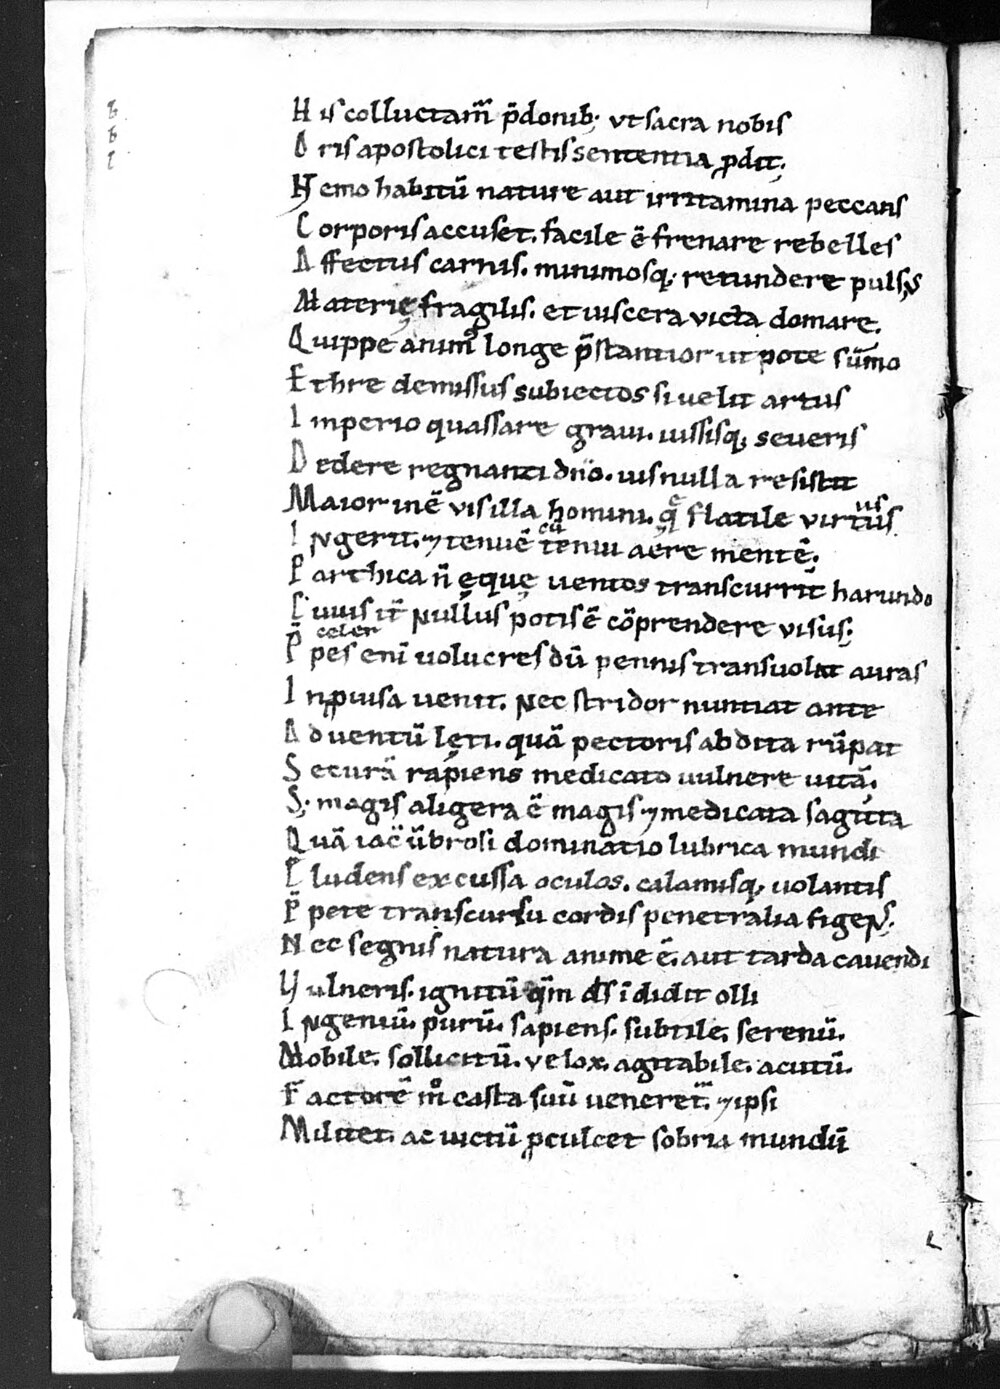 b
b
l
H is colluctam̅ p̅donib; ut sacra nobis
O ris apostolici testis sententia ꝓdit;
N emo habitū nature aut irritamina peccans
C orporis accuset. facile ē frenare rebelles
A ffectus carnis. minimosq; retundere pulsus
M aterię fragilis. et viscera victa domare.
Q uippe animꝰ longe p̅stantior ut pote sūmo
E thre demissus subiectos si velit artus
I mperio quassare gravi. iussisq; severis
D edere regnanti dn̅o. vis nulla resistit
M aior inē vis illa homini. q̅ę flatile virtus
us
I ngerit. ⁊ tenuē tenui aere mentē.
cū
P arthica n̅ ęque ventos transcurrit̅ harundo
C uius it̅ nullus potis ē cōprendere visus;
celer
P̅ pes eni̅ volucres dū pennis transvolat auras
I nꝓvisa venit. nec stridor nuntiat ante
A dventū lęti. quā pectoris abdita rūpat
S ecurā rapiens medicato vulnere vitā.
S; magis aligera ē magis ⁊ medicata sagitta
Q uā iac̅ ūbrosi dominatio lubrica mundi
E ludens excussa oculos. calamisq; volantis
P̅ pete transcursu cordis penetralia figens;
N ec segnis natura anime ē. aut tarda cavendi
V ulneris. ignitū q̅m ds̅ īdidit olli
I ngeniū. purū. sapiens. subtile. serenū.
M obile. sollicitū. velox. agitabile. acutū.
F actorē mͦ casta suū veneret̅. ⁊ ipsi
M ilitet. ac victū ꝓculcet sobria mundū